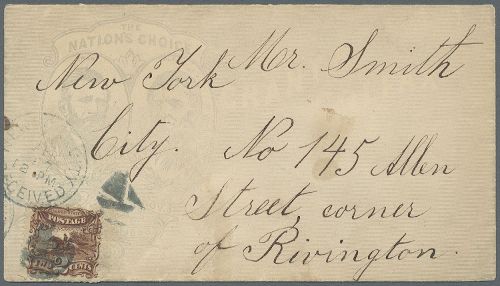 THE
NATION'S CHOICE
New York Mr. Smith
City. No 145 Allen
Street, corner
of Rivington.
8 PM
RECEIVED
POSTAGE
CENTS